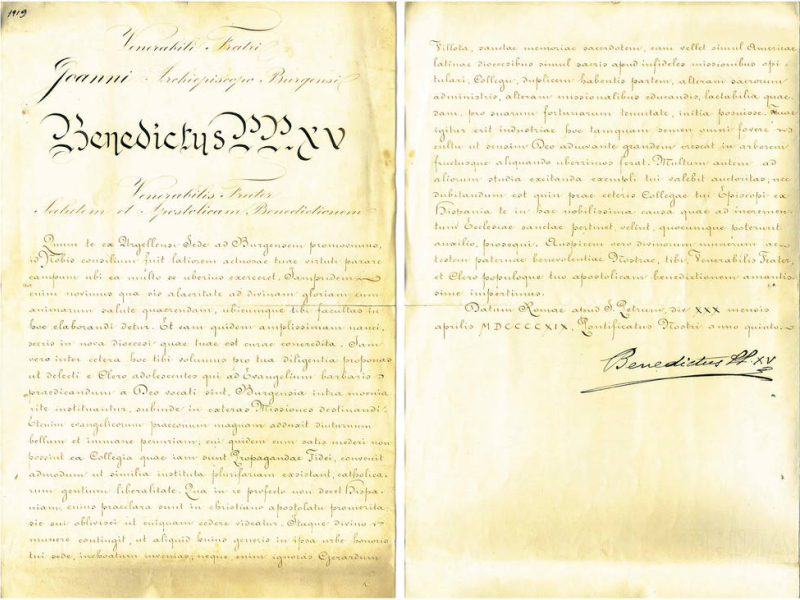 1919
Venerabili Fratri
Joanni Archiepiscopo Burgensi
Benedictus PP. XV
Venerabilis Frater
Salutem et Apostolicam Benedictionem
Quum te ex Urgellensi Sede ad Burgensem promovimus,
is Nobis consilium fuit latiorem actuosae tuae virtuti parare
campum ubi ea multo se uberius exerceret. Jampridem
enim novimus qua sis alacritate ad divinam gloriam cum
animarum salute quaerendam, ubicumque tibi facultas in
hoc elaborandi detur. Et eam quidem amplissimam nanci-
sceris in nova dioecesi quae tuae est curae concredita. Jam
vero inter cetera hoc tibi volumus pro tua diligentia proponas
ut delecti e Clero adolescentes qui ad Evangelium barbaris
praedicandum a Deo vocati sint, Burgensia intra moenia
rite instituantur, subinde in exteras Missiones destinandi.
Etenim evangelicorum praeconum magnam adduxit diuturnum
bellum et immane penuriam; cui quidem cum satis mederi non
possint ea Collegia quae iam sunt Propagandae Fidei, convenit
admodum ut similia instituta plurifariam exsistant, catholica-
rum gentium liberalitate. Qua in re profecto non decet Hispa-
niam, cuius praeclara sunt in christiano apostolatu promerita
sic sui oblivisci ut cuiquam cedere videatur. Itaque divino
munere contingit, ut aliquid huius generis in ipsa urbe honoris
tui sede, inchoatum invenias; neque enim ignoras Gerardum
Villota, sanctae memoriae sacerdotem, cum vellet simul Americae
latinae dioecesibus simul sacris apud infideles missionibus opi-
tulari, Collegii, duplicem habentis partem, alteram sacrorum
administris, alteram missionalibus educandis, laetabilia quae-
dam, pro suarum fortunarum tenuitate, initia posuisse. Tuae
igitur erit industriae hoc tamquam semen omni fovere
cultu ut sensim Deo adiuvante grandem crescat in arborem
fructusque aliquando uberrimos ferat. Multum autem ad
aliorum studia excitanda exempli tui valebit auctoritas; nec
dubitandum est quin prae ceteris Collegae tui Episcopi ex
Hispania te in hac nobilissima causa quae ad incremen-
tum Ecclesiae sanctae pertinet, velint, quocumque poterunt
auxilio, prosequi. Auspicem vero divinorum munerum ac
testem paternae benevolentiae Nostrae, tibi, Venerabilis Frater,
et Clero populoque tuo apostolicam benedictionem amantis-
sime impertimus.
Datum Romae apud S. Petrum, die XXX mensis
aprilis MDCCCCXIX, Pontificatus Nostri anno quinto.
Benedictus PP. XV